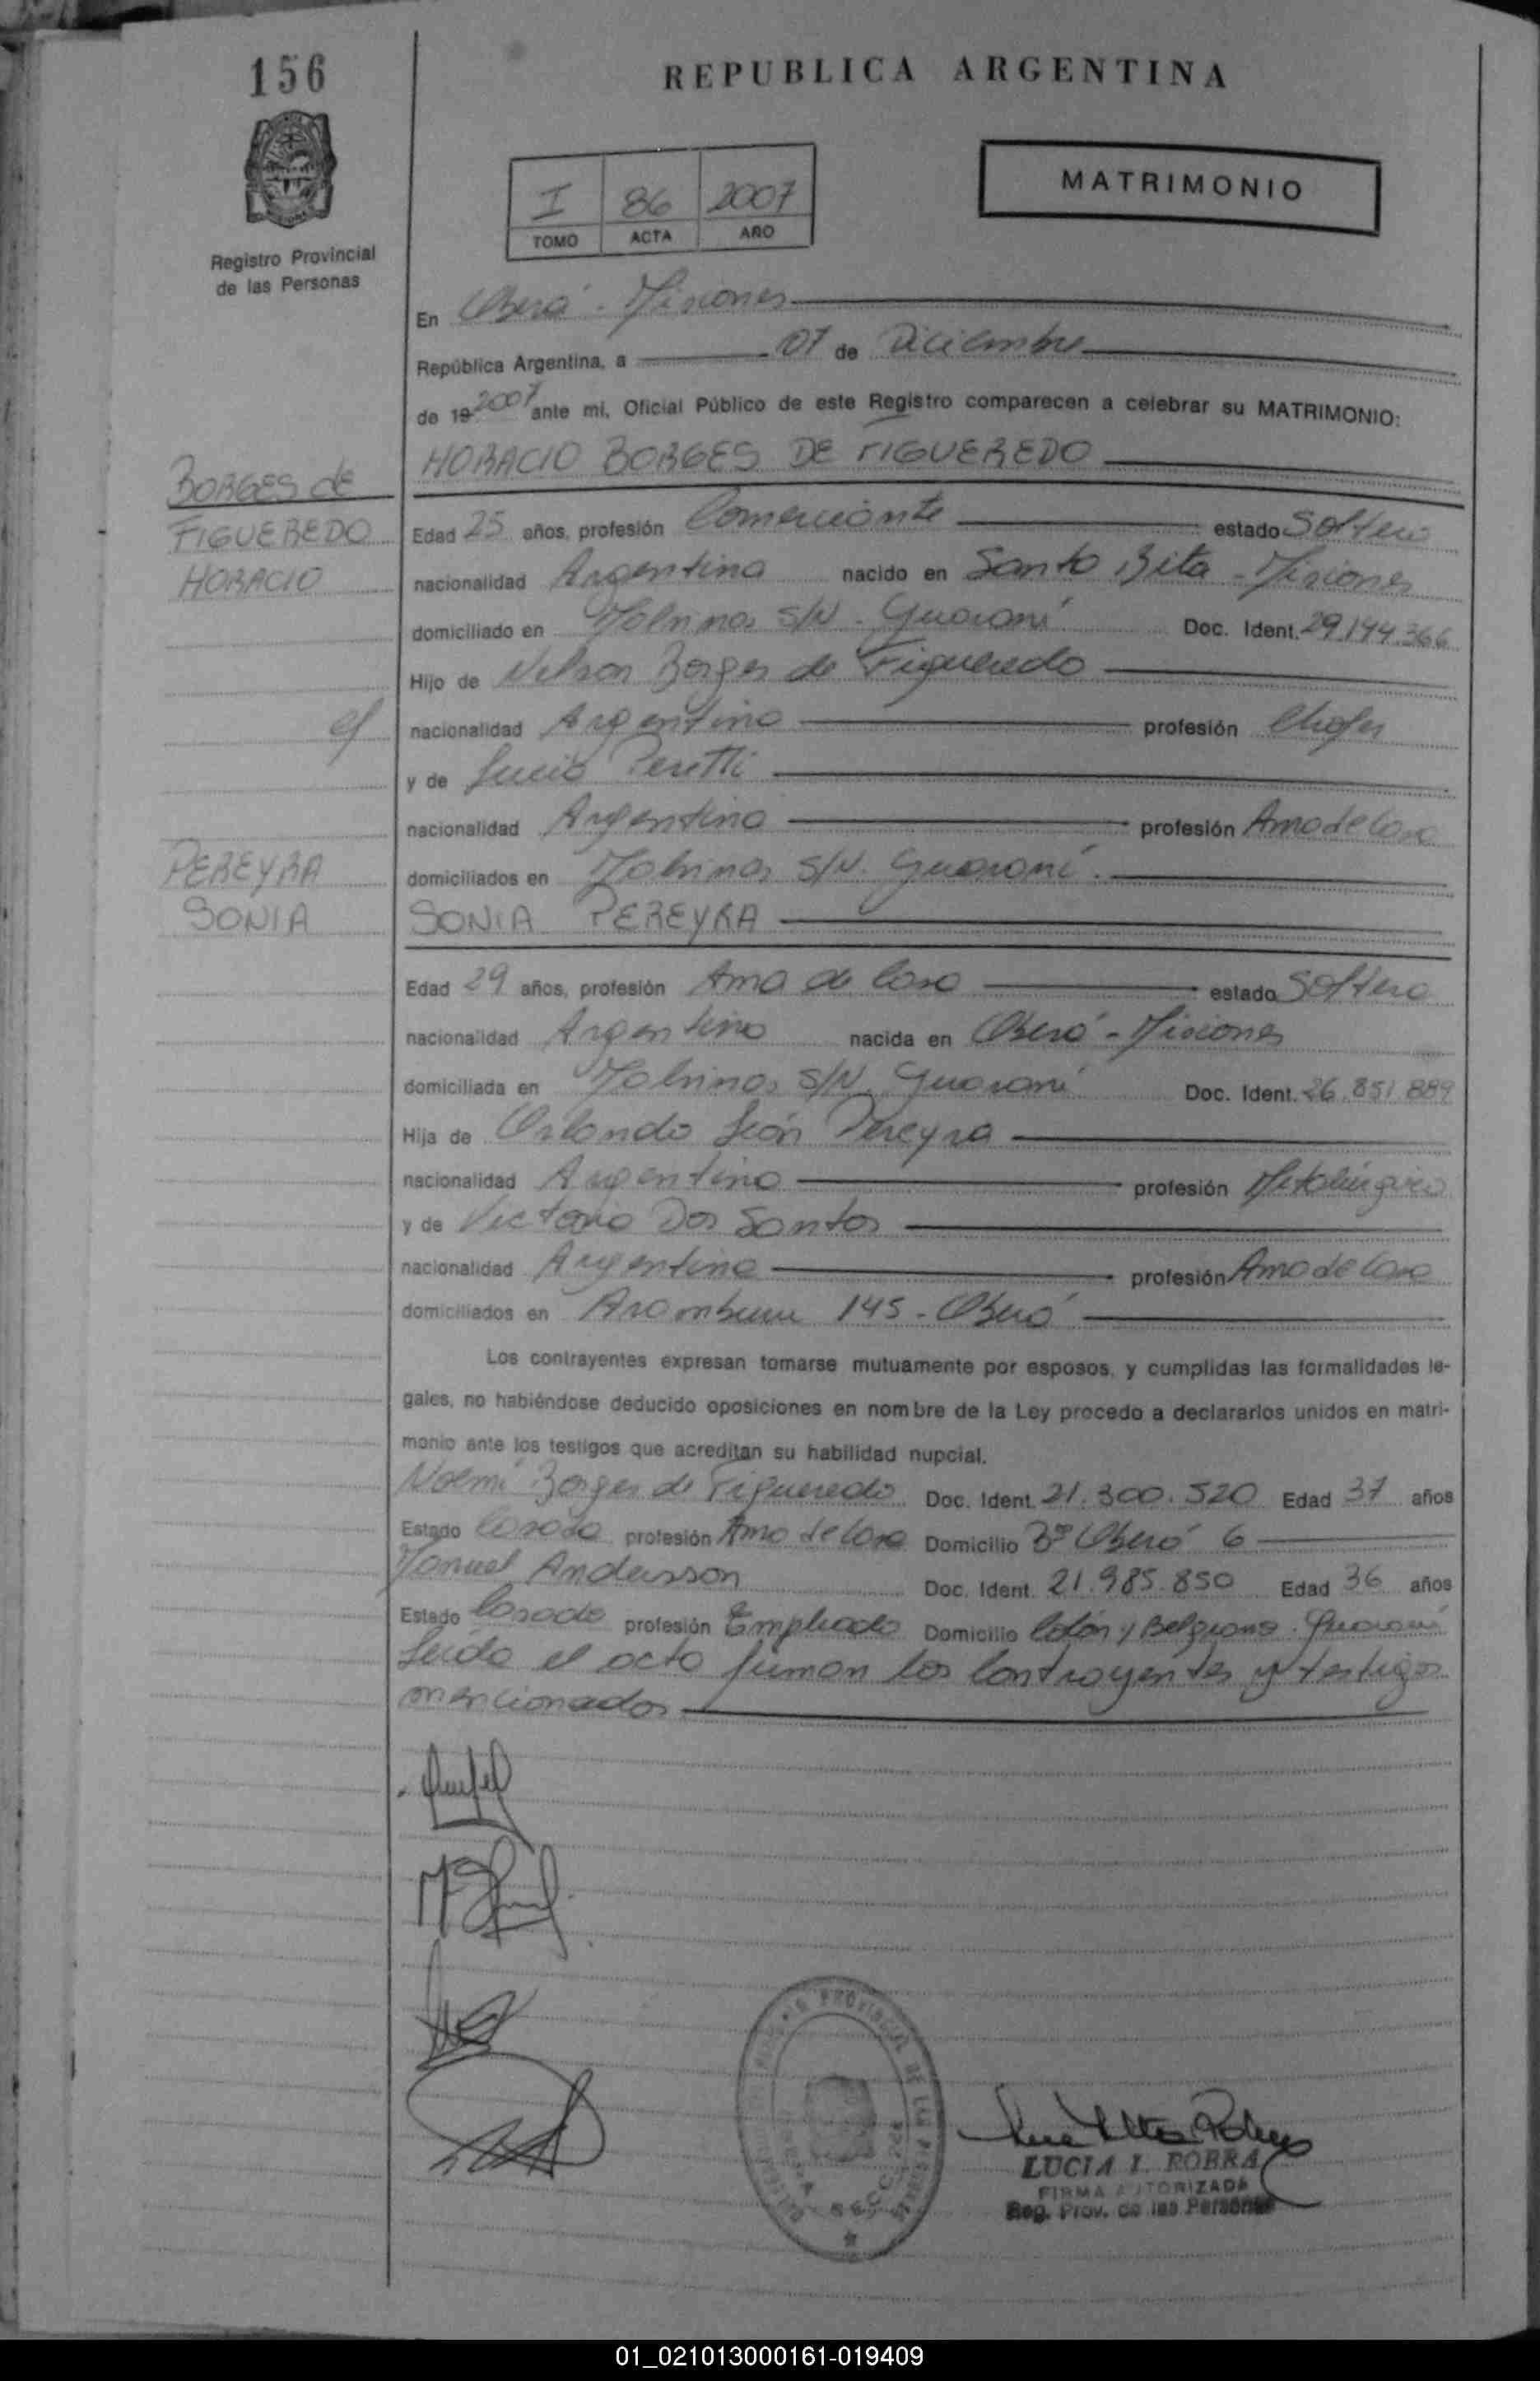 156
REPUBLICA ARGENTINA
I 86 2007
TOMO ACTA AÑO
MATRIMONIO
Registro Provincial
de las Personas
En Oberá - Misiones
República Argentina, a 07 de Diciembre
de 19 2007 ante mi, Oficial Público de este Registro comparecen a celebrar su MATRIMONIO:
HORACIO BORGES DE FIGUEREDO
BORGES de
FIGUEREDO
HORACIO
Edad 25 años, profesión Comerciante estado Soltero
nacionalidad Argentina nacido en Santo Rita - Misiones
domiciliado en Malvinas S/N - Guaraní Doc. Ident. 29.194.366
Hijo de Nelson Borges de Figueredo
nacionalidad Argentina profesión Chofer
y de Lucia Peretti
nacionalidad Argentina profesión Ama de Casa
domiciliados en Malvinas S/N. Guaraní.
PEREYRA
SONIA
SONIA PEREYRA
Edad 29 años, profesión Ama de Casa estado Soltera
nacionalidad Argentina nacida en Oberá - Misiones
domiciliada en Malvinas S/N. Guaraní Doc. Ident. 26.851.889
Hija de Orlando León Pereyra
nacionalidad Argentina profesión Metalúrgico
y de Victoria Dos Santos
nacionalidad Argentina profesión Ama de Casa
domiciliados en Aramburu 145 - Oberá
Los contrayentes expresan tomarse mutuamente por esposos, y cumplidas las formalidades le-
gales, no habiéndose deducido oposiciones en nombre de la Ley procedo a declararlos unidos en matri-
monio ante los testigos que acreditan su habilidad nupcial.
Noemí Borges de Figueredo Doc. Ident. 21.300.520 Edad 37 años
Estado Casada profesión Ama de Casa Domicilio Bº Oberá 6
Manuel Andersson Doc. Ident. 21.985.850 Edad 36 años
Estado Casado profesión Empleado Domicilio Colón y Belgrano. Guaraní
Leída el acta firman los Contrayentes y testigos
mencionados
LUCIA I. ROBRA
FIRMA AUTORIZADA
Reg. Prov. de las Personas
01_021013000161-019409